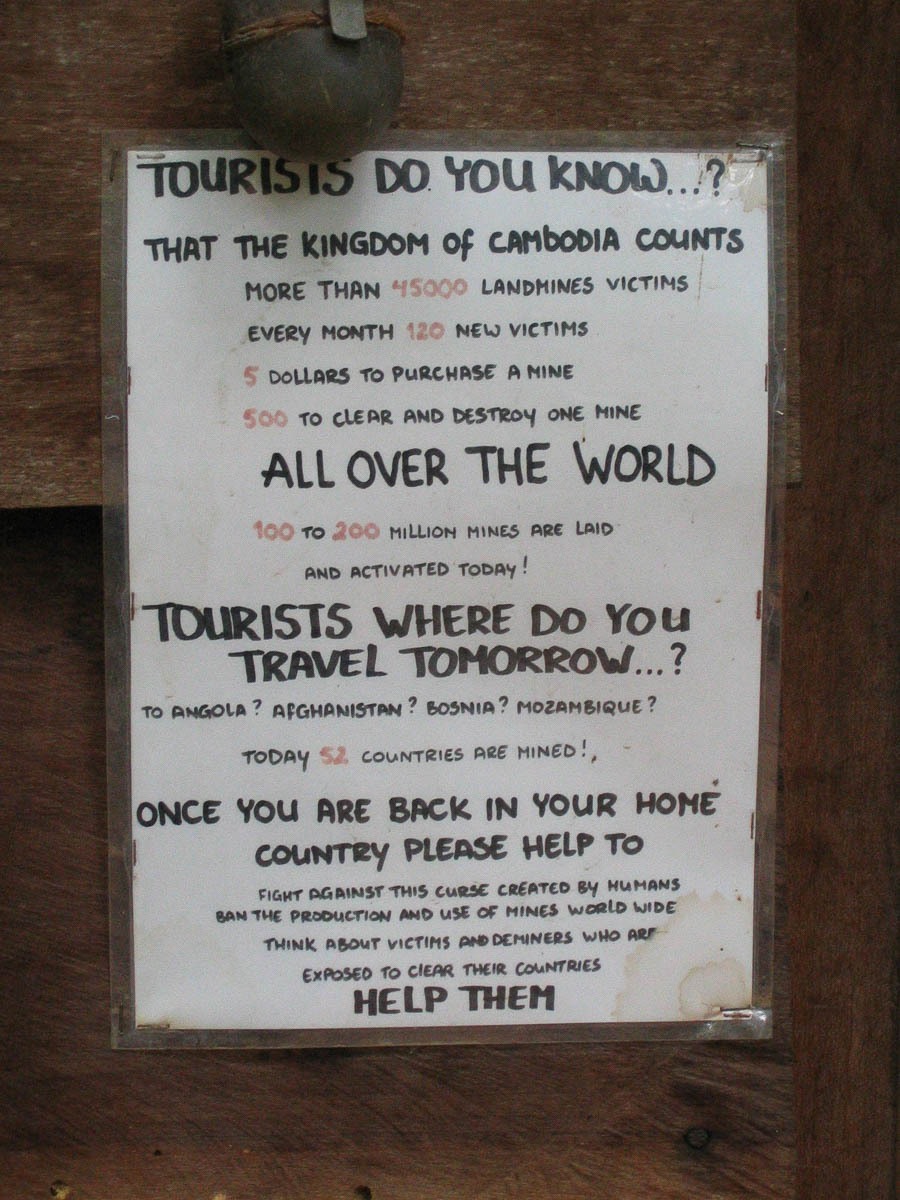 TOURISTS DO YOU KNOW...?
THAT THE KINGDOM Of CAMBODIA COUNTS
MORE THAN 45000 LANDMINES VICTIMS
EVERY MONTH 120 NEW VICTIMS
5 DOLLARS TO PURCHASE A MINE
500 TO CLEAR AND DESTROY ONE MINE
ALL OVER THE WORLD
100 TO 200 MILLION MINES ARE LAID
AND ACTIVATED TODAY!
TOURISTS WHERE DO YOU
TRAVEL TOMORROW...?
TO ANGOLA? AFGHANISTAN? BOSNIA? MOZAMBIQUE?
TODAY 52 COUNTRIES ARE MINED!,
ONCE YOU ARE BACK IN YOUR HOME
COUNTRY PLEASE HELP TO
FIGHT AGAINST THIS CURSE CREATED BY HUMANS
BAN THE PRODUCTION AND USE OF MINES WORLD WIDE
THINK ABOUT VICTIMS AND DEMINERS WHO ARE
EXPOSED TO CLEAR THEIR COUNTRIES
HELP THEM